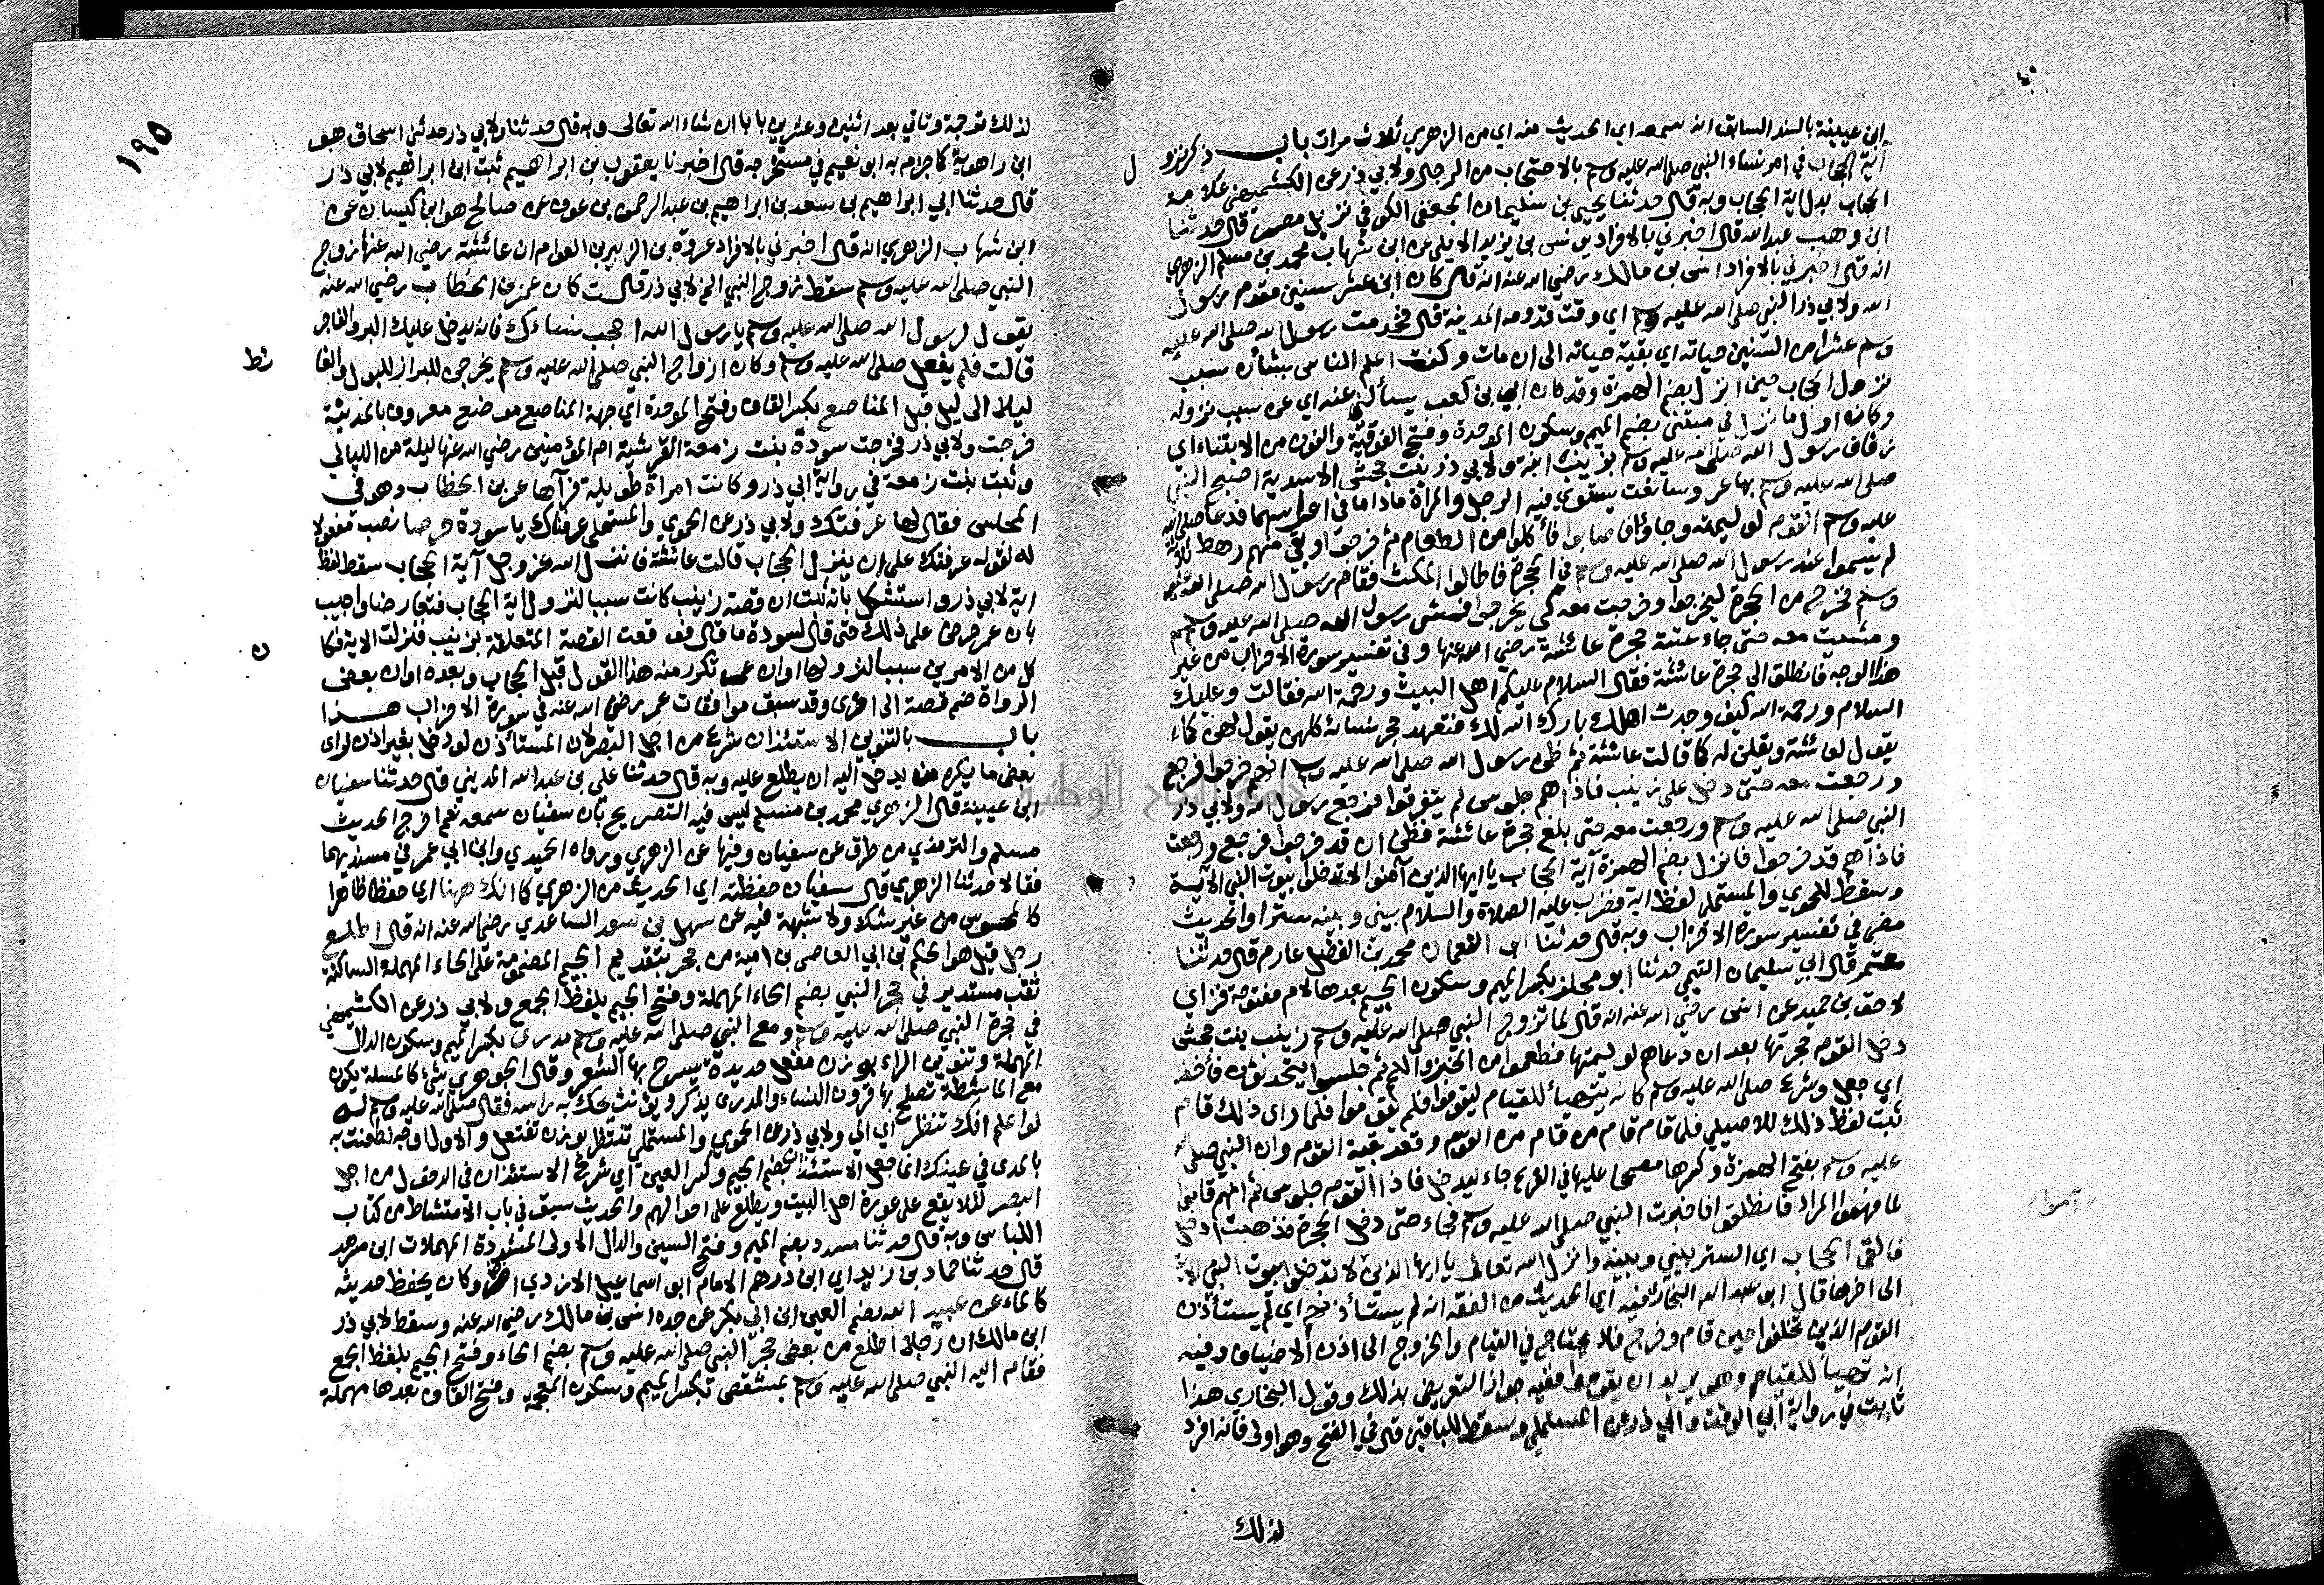 ابن عيينة بالسند السابق انه سمعه اي الحديث منه اي من الزهري ثلاث مرات باب ذكر نزو
ل
آية الحجاب في امر نساء النبي صلى الله عليه وسلم بالاحتجاب من الرجال ولابي ذر عن الكشميهني علامة
الحجاب بدل اية الحجاب وبه قال حدثنا يحيى بن سليمان الجعفي الكوفي نزيل مصر قال حدثنا
ابن وهب عبد الله قال اخبرني بالافراد يونس بن يزيد الايلي عن ابن شهاب محمد بن مسلم الزهري
انه قال اخبرني بالافراد انس بن مالك رضي الله عنه انه قال كان ابن عشر سنين مقدم رسول
الله ولابي ذر النبي صلى الله عليه وسلم اي وقت قدومه المدينة قال فخدمت رسول الله صلى الله عليه
وسلم عشرا من السنين حياته اي بقية حياته الى ان مات وكنت اعلم الناس بشأن سبب
نزول الحجاب حين انزل بضم الهمزة وقد كان ابي بن كعب يسألني عنه اي عن سبب نزوله
وكان اول ما نزل في مبتنى بضم الميم وسكون الموحدة وفتح الفوقية والنون من الابتناء اي
زفاف رسول الله صلى الله عليه وسلم بزينب ابنة ولابي ذر بنت جحش الاسدية اصبح النبي
صلى الله عليه وسلم بها عروسا نعت يستوي فيه الرجل والمرأة ماداما في اعراسهما فدعا صلى الله
عليه وسلم القوم لوليمته وجاؤا فاصابوا فأكلوا من الطعام ثم خرجوا وبقي منهم رهط ثلاثة
لم يسموا عند رسول الله صلى الله عليه وسلم في الحجرة فاطالوا المكث فقام رسول الله صلى الله عليه
وسلم فخرج من الحجرة ليخرجوا وخرجت معه كي يخرجوا فمشى رسول الله صلى الله عليه وسلم
ومشيت معه حتى جاء عتبة حجرة عائشة رضي الله عنها وفي تفسير سورة الاحزاب من غير
هذا الوجه فانطلق الى حجرة عائشة فقال السلام عليكم اهل البيت ورحمة الله فقالت وعليك
السلام ورحمة الله كيف وجدت اهلك بارك الله لك فتعهد حجر نسائه كلهن يقول لهن كما
يقول لعائشة ويقلن له كما قالت عائشة ثم ظن رسول الله صلى الله عليه وسلم انهم خرجوا فرجع
ورجعت معه حتى دخل على زينب فاذا هم جلوس لم يتفرقوا فرجع رسول الله ولابي ذر
النبي صلى الله عليه وسلم ورجعت معه حتى بلغ حجرة عائشة فظن ان قد خرجوا فرجع ورجعت
فاذا هم قد خرجوا فانزل بضم الهمزة آية الحجاب يا ايها الذين آمنوا لا تدخلوا بيوت النبي الآية
وسقط للحموي والمستملي لفظ اية فضرب عليه الصلاة والسلام بيني وبينه سترا والحديث
مضى في تفسير سورة الاحزاب وبه قال حدثنا ابو النعمان محمد بن الفضل عارم قال حدثنا
معتمر قال ابي سليمان التيمي حدثنا ابو مجلز بكسر الميم وسكون الجيم بعدها لام مفتوحة فزاي
لاحق بن حميد عن انس رضي الله عنه انه قال لما تزوج النبي صلى الله عليه وسلم زينب بنت جحش
دخل القوم حجرتها بعد ان دعاهم لوليمتها فطعموا من الخبز واللحم ثم جلسوا يتحدثون فأخذ
اي جعل وشرع صلى الله عليه وسلم كانه يتهيأ للقيام ليقوموا فلم يقوموا فلما راى ذلك قام
ثبت لفظ ذلك للاصيلي فلما قام قام من قام من القوم وقعد بقية القوم وان النبي صلى الله
عليه وسلم بفتح الهمزة وكسرها مصححا عليها في الفرع جاء ليدخل فاذا القوم جلوس ثم انهم قاموا
لما فهموا المراد فانطلقوا فاخبرت النبي صلى الله عليه وسلم فجاء حتى دخل الحجرة فذهبت ادخل
فالقى الحجاب اي الستر بيني وبينه وانزل الله تعالى يا ايها الذين لا تدخلوا بيوت النبي الآية
الى اخرها قال ابو عبد الله البخاري فيه اي الحديث من الفقه انه لم يستأذنهم اي لم يستأذن
القوم الذين تخلفوا حين قام وخرج فلا يحتاج في القيام والخروج الى اذن الاضياف وفيه
انه تهيأ للقيام وهو يريد ان يقوموا ففيه جواز التعريض بذلك وقول البخاري هذا
ثابت في رواية ابي الوقت وابي ذر عن المستملي وسقط للباقين قال في الفتح وهو اولى فانه افرد
لذلك
١٩٥
لذلك ترجمة وتاتي بعد اثنين وعشرين بابا ان شاء الله تعالى وبه قال حدثنا ولابي ذر حدثني اسحاق هو
ابن راهوية كما جزم به ابو نعيم في مستخرجه قال اخبرنا يعقوب بن ابراهيم ثبت ابن ابراهيم لابي ذر
قال حدثنا ابي ابراهيم بن سعد بن ابراهيم بن عبد الرحمن بن عوف عن صالح هو ابن كيسان عن
ابن شهاب الزهري انه قال اخبرني بالافراد عروة بن الزبير بن العوام ان عائشة رضي الله عنها زوج
النبي صلى الله عليه وسلم سقط زوج النبي الخ لابي ذر قالت كان عمر بن الخطاب رضي الله عنه
يقول لرسول الله صلى الله عليه وسلم يا رسول الله احجب نساءك فانه يدخل عليك البر والفاجر
قالت فلم يفعل صلى الله عليه وسلم وكان ازواج النبي صلى الله عليه وسلم يخرجن للبراز للبول والغا
ئط
ليلا الى ليل قبل المناصع بكسر القاف وفتح الموحدة اي جهة المناصع موضع معروف بالمدينة
فخرجت ولابي ذر فخرجت سودة بنت زمعة القرشية ام المؤمنين رضي الله عنها ليلة من الليالي
وثبت بنت زمعة في رواية ابي ذر وكانت امراة طويلة فرآها عمر بن الخطاب وهو في
المجلس فقال لها عرفتك ولابي ذر عن الحموي والمستملي عرفناك يا سودة حرصا نصب مفعولا
له لقوله عرفتك على ان ينزل الحجاب قالت عائشة فانزل الله عز وجل آية الحجاب سقط لفظ
اية لابي ذر واستشكل بانه ثبت ان قصة زينب كانت سببا لنزول اية الحجاب فتعارضا واجيب
بان عمر حرص على ذلك حتى قال لسودة ما قال فوقعت القصة المتعلقة بزينب فنزلت الاية فكا
ن
كل من الامرين سببا لنزولها او ان عمر تكرر منه هذا القول قبل الحجاب وبعده او ان بعض
الرواة ضم قصة الى اخرى وقد سبق موافقات عمر رضي الله عنه في سورة الاحزاب هذا
باب بالتنوين الاستئذان شرع من اجل البصر لان المستأذن لو دخل بغير اذن لراى
بعض ما يكره من يدخل اليه ان يطلع عليه وبه قال حدثنا علي بن عبد الله المديني قال حدثنا سفيان
ابن عيينة قال الزهري محمد بن مسلم ليس فيه التصريح بان سفيان سمعه نعم اخرج الحديث
مسلم والترمذي من طرق عن سفيان وفيها عن الزهري ورواه الحميدي وابن ابي عمر في مسنديهما
فقالا حدثنا الزهري قال سفيان حفظته اي الحديث من الزهري كما انك ههنا اي حفظا ظاهرا
كالمحسوس من غير شك ولا شبهة فيه عن سهل بن سعد الساعدي رضي الله عنه انه قال اطلع
رجل قيل هو الحكم بن ابي العاصي بن امية من جحر بتقديم الجيم المضمومة على الحاء المهملة الساكنة
ثقب مستدير في حجر النبي بضم الحاء المهملة وفتح الجيم بلفظ الجمع ولابي ذر عن الكشميهني
في حجرة النبي صلى الله عليه وسلم ومع النبي صلى الله عليه وسلم مدرى بكسر الميم وسكون الدال
المهملة وتنوين الراء بوزن مفعل حديدة يسرح بها الشعر وقال الجوهري شئ كالمسلة يكون
مع الماشطة تصلح بها قرون النساء والمدرى يذكر ويؤنث يحك به راسه فقال صلى الله عليه وسلم له
لو اعلم انك تنظر اي الي ولابي ذر عن الحموي والمستملي تنتظر بوزن تفتعل والاول اوجه لطعنت به
بالمدرى في عينك انما جعل الاستئذان بضم الجيم وكسر العين اي شرع الاستئذان في الدخول من اجل
البصر لئلا يقع على عورة اهل البيت ويطلع على احوالهم والحديث سبق في باب الامتشاط من كتاب
اللباس وبه قال حدثنا مسدد بضم الميم وفتح السين والدال الاولى المشددة المهملات ابن مسرهد
قال حدثنا حماد بن زيد اي ابن درهم الامام ابو اسماعيل الازدي وكان يحفظ حديثه
كالماء عن عبيد الله بضم العين ابن ابي بكر عن جده انس بن مالك رضي الله عنه وسقط لابي ذر
ابن مالك ان رجلا اطلع من بعض حجر النبي صلى الله عليه وسلم بضم الحاء وفتح الجيم بلفظ الجمع
فقام اليه النبي صلى الله عليه وسلم بمشقص بكسر الميم وسكون المعجمة وفتح القاف بعدها مهملة